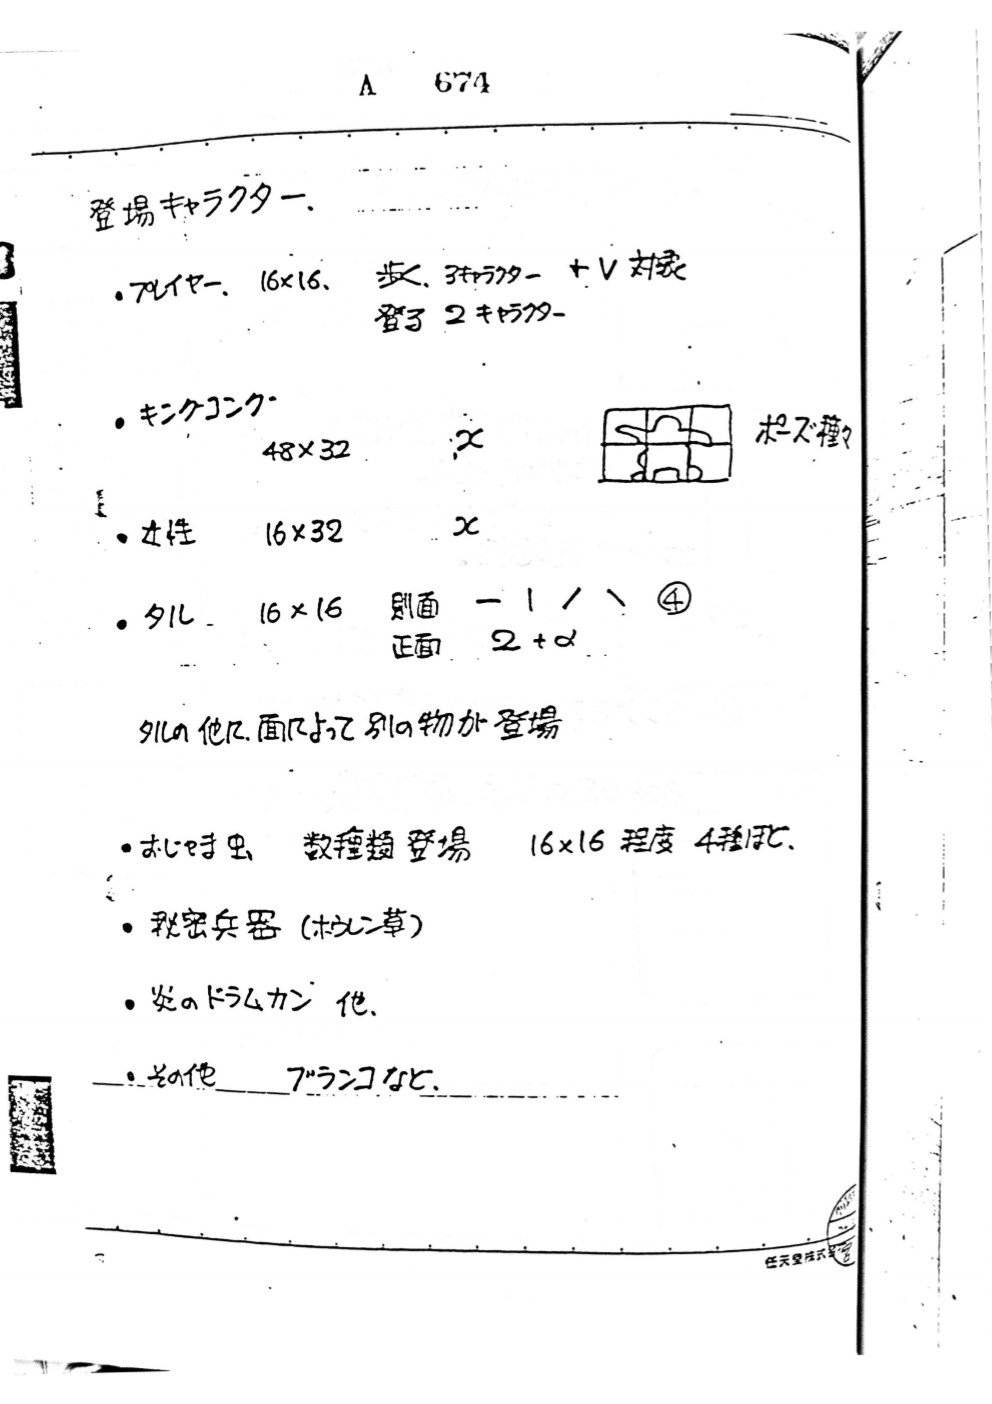 A 674
登場キャラクター、
・プレイヤー、 16×16、 歩く、3キャラクター +V 対象
登る 2キャラクター
・キングコング
48×32 × ポーズ種々
・女性 16×32 ×
・タル 16×16 則面 ー | / \ ④
正面 2+α
タルの他に、面によって別の物が登場
・おじゃま虫、 数種類登場 16×16 程度 4種ほど、
・秘密兵器 (ホウレン草)
・炎のドラムカン 他、
・その他 ブランコなど、
任天堂株式会